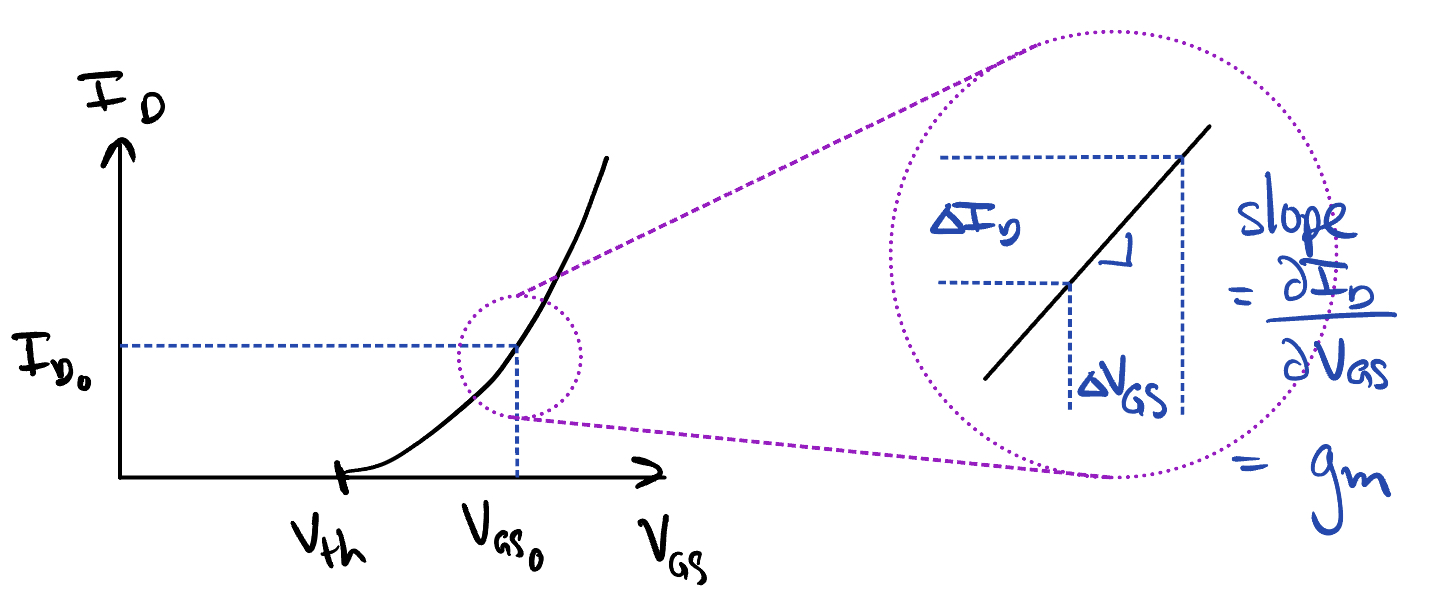 I_D
I_D₀
V_th
V_GS₀
V_GS
ΔI_D
ΔV_GS
slope
= ∂I_D
∂V_GS
= gm